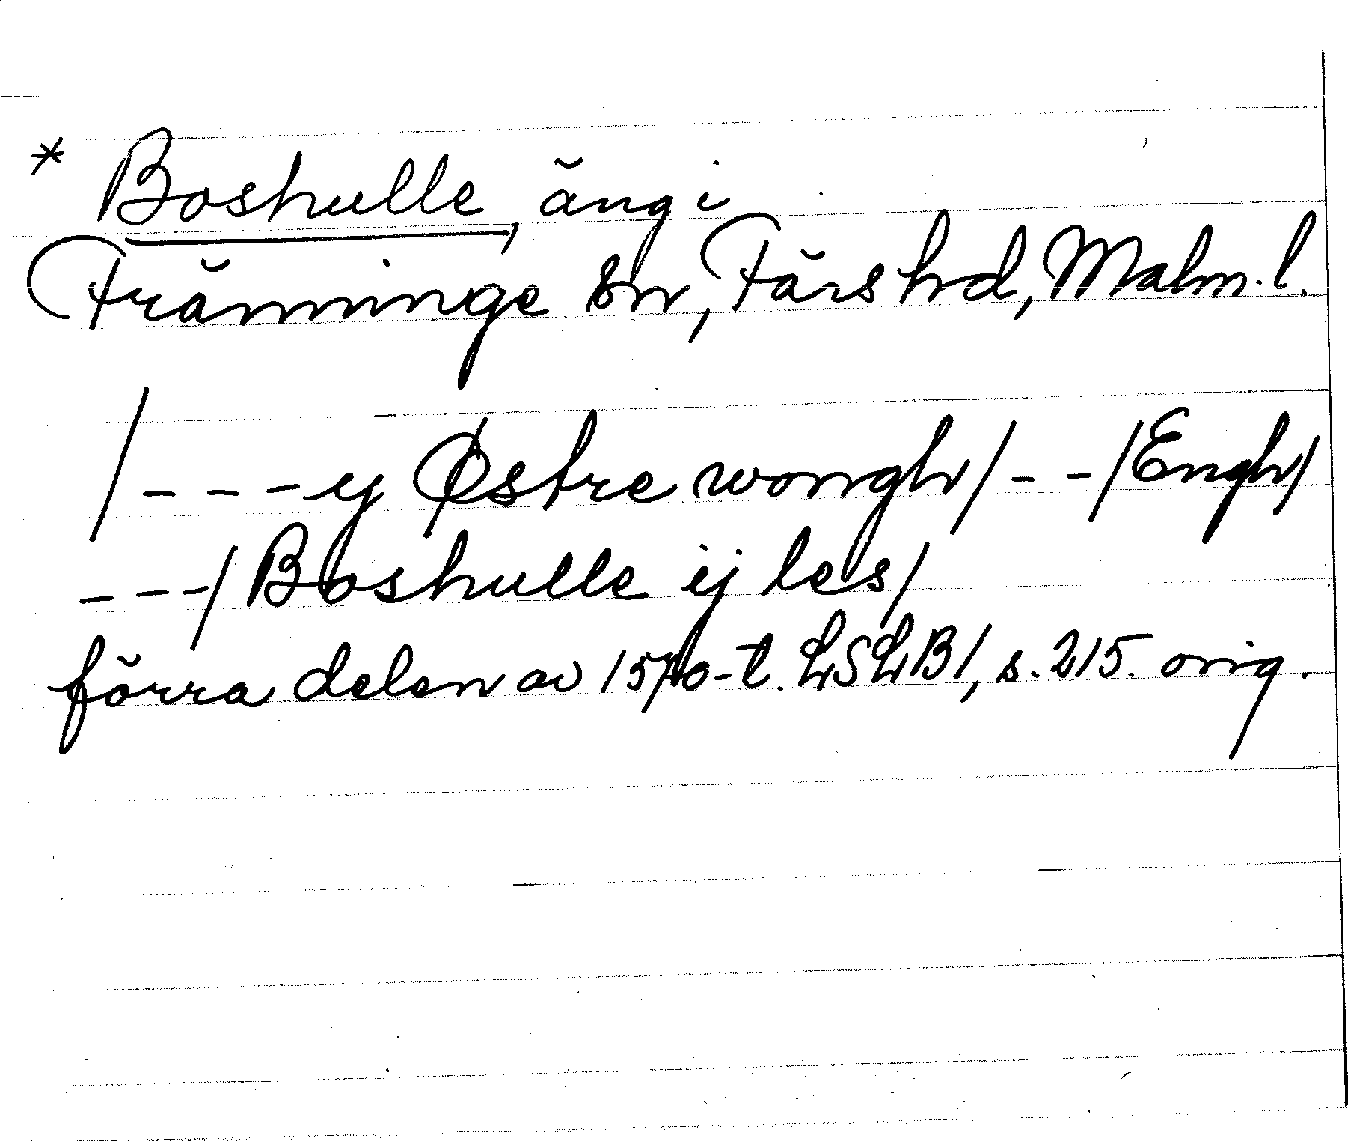 * Boshulle, äng i
Tränninge sn, Färs hd, Malm. l.
/ - - - y Østre wongh / - - / Engh /
- - - / Boshulle ij les /
förra delen av 1570-t. LSLB1, s. 215. orig.